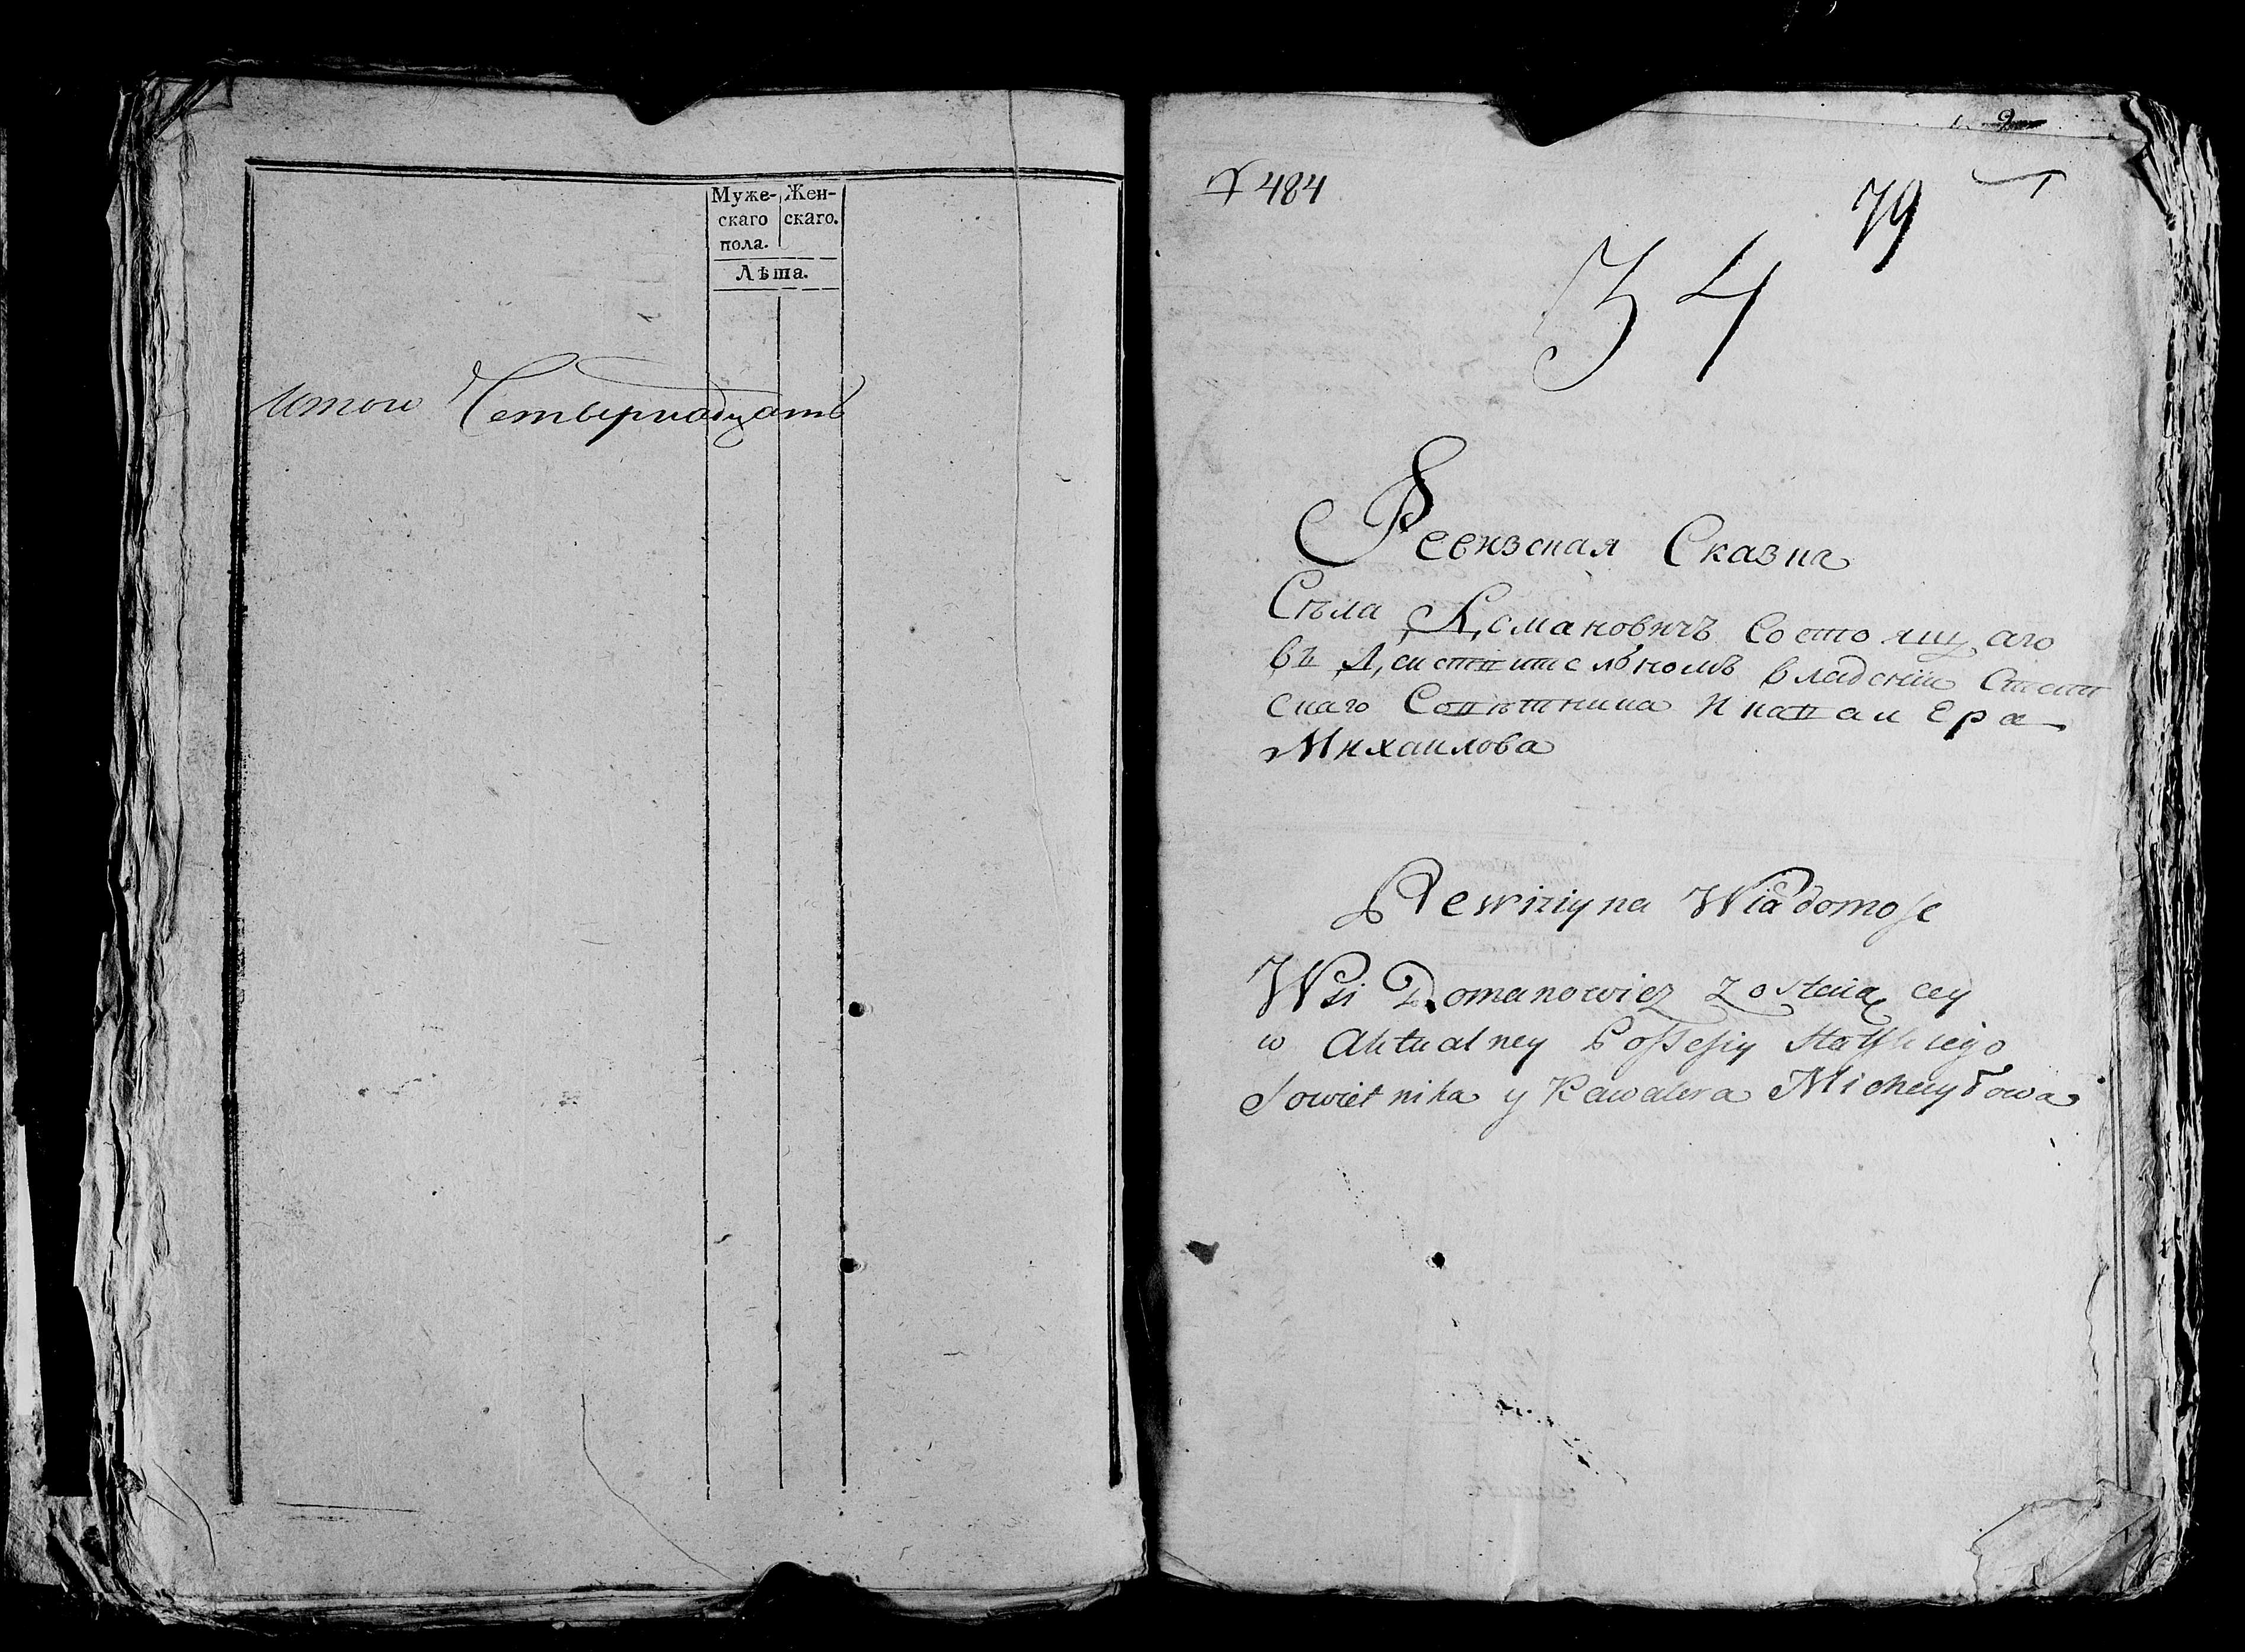 Муже-
скаго
пола.
Жен-
скаго.
Лѣта.
Итого Четырнадцать
484
79
34
Ревизская Сказка
Сѣла Домановичъ Состоящаго
въ Действительномъ владении Статт
скаго Советника и кавалера
Михаилова
Rewiziyna Wiadomosc
Wsi Domanowicz Zostaiącey
w Aktualney Possesiy Statskiego
Sowietnika y Kawalera Michayłowa